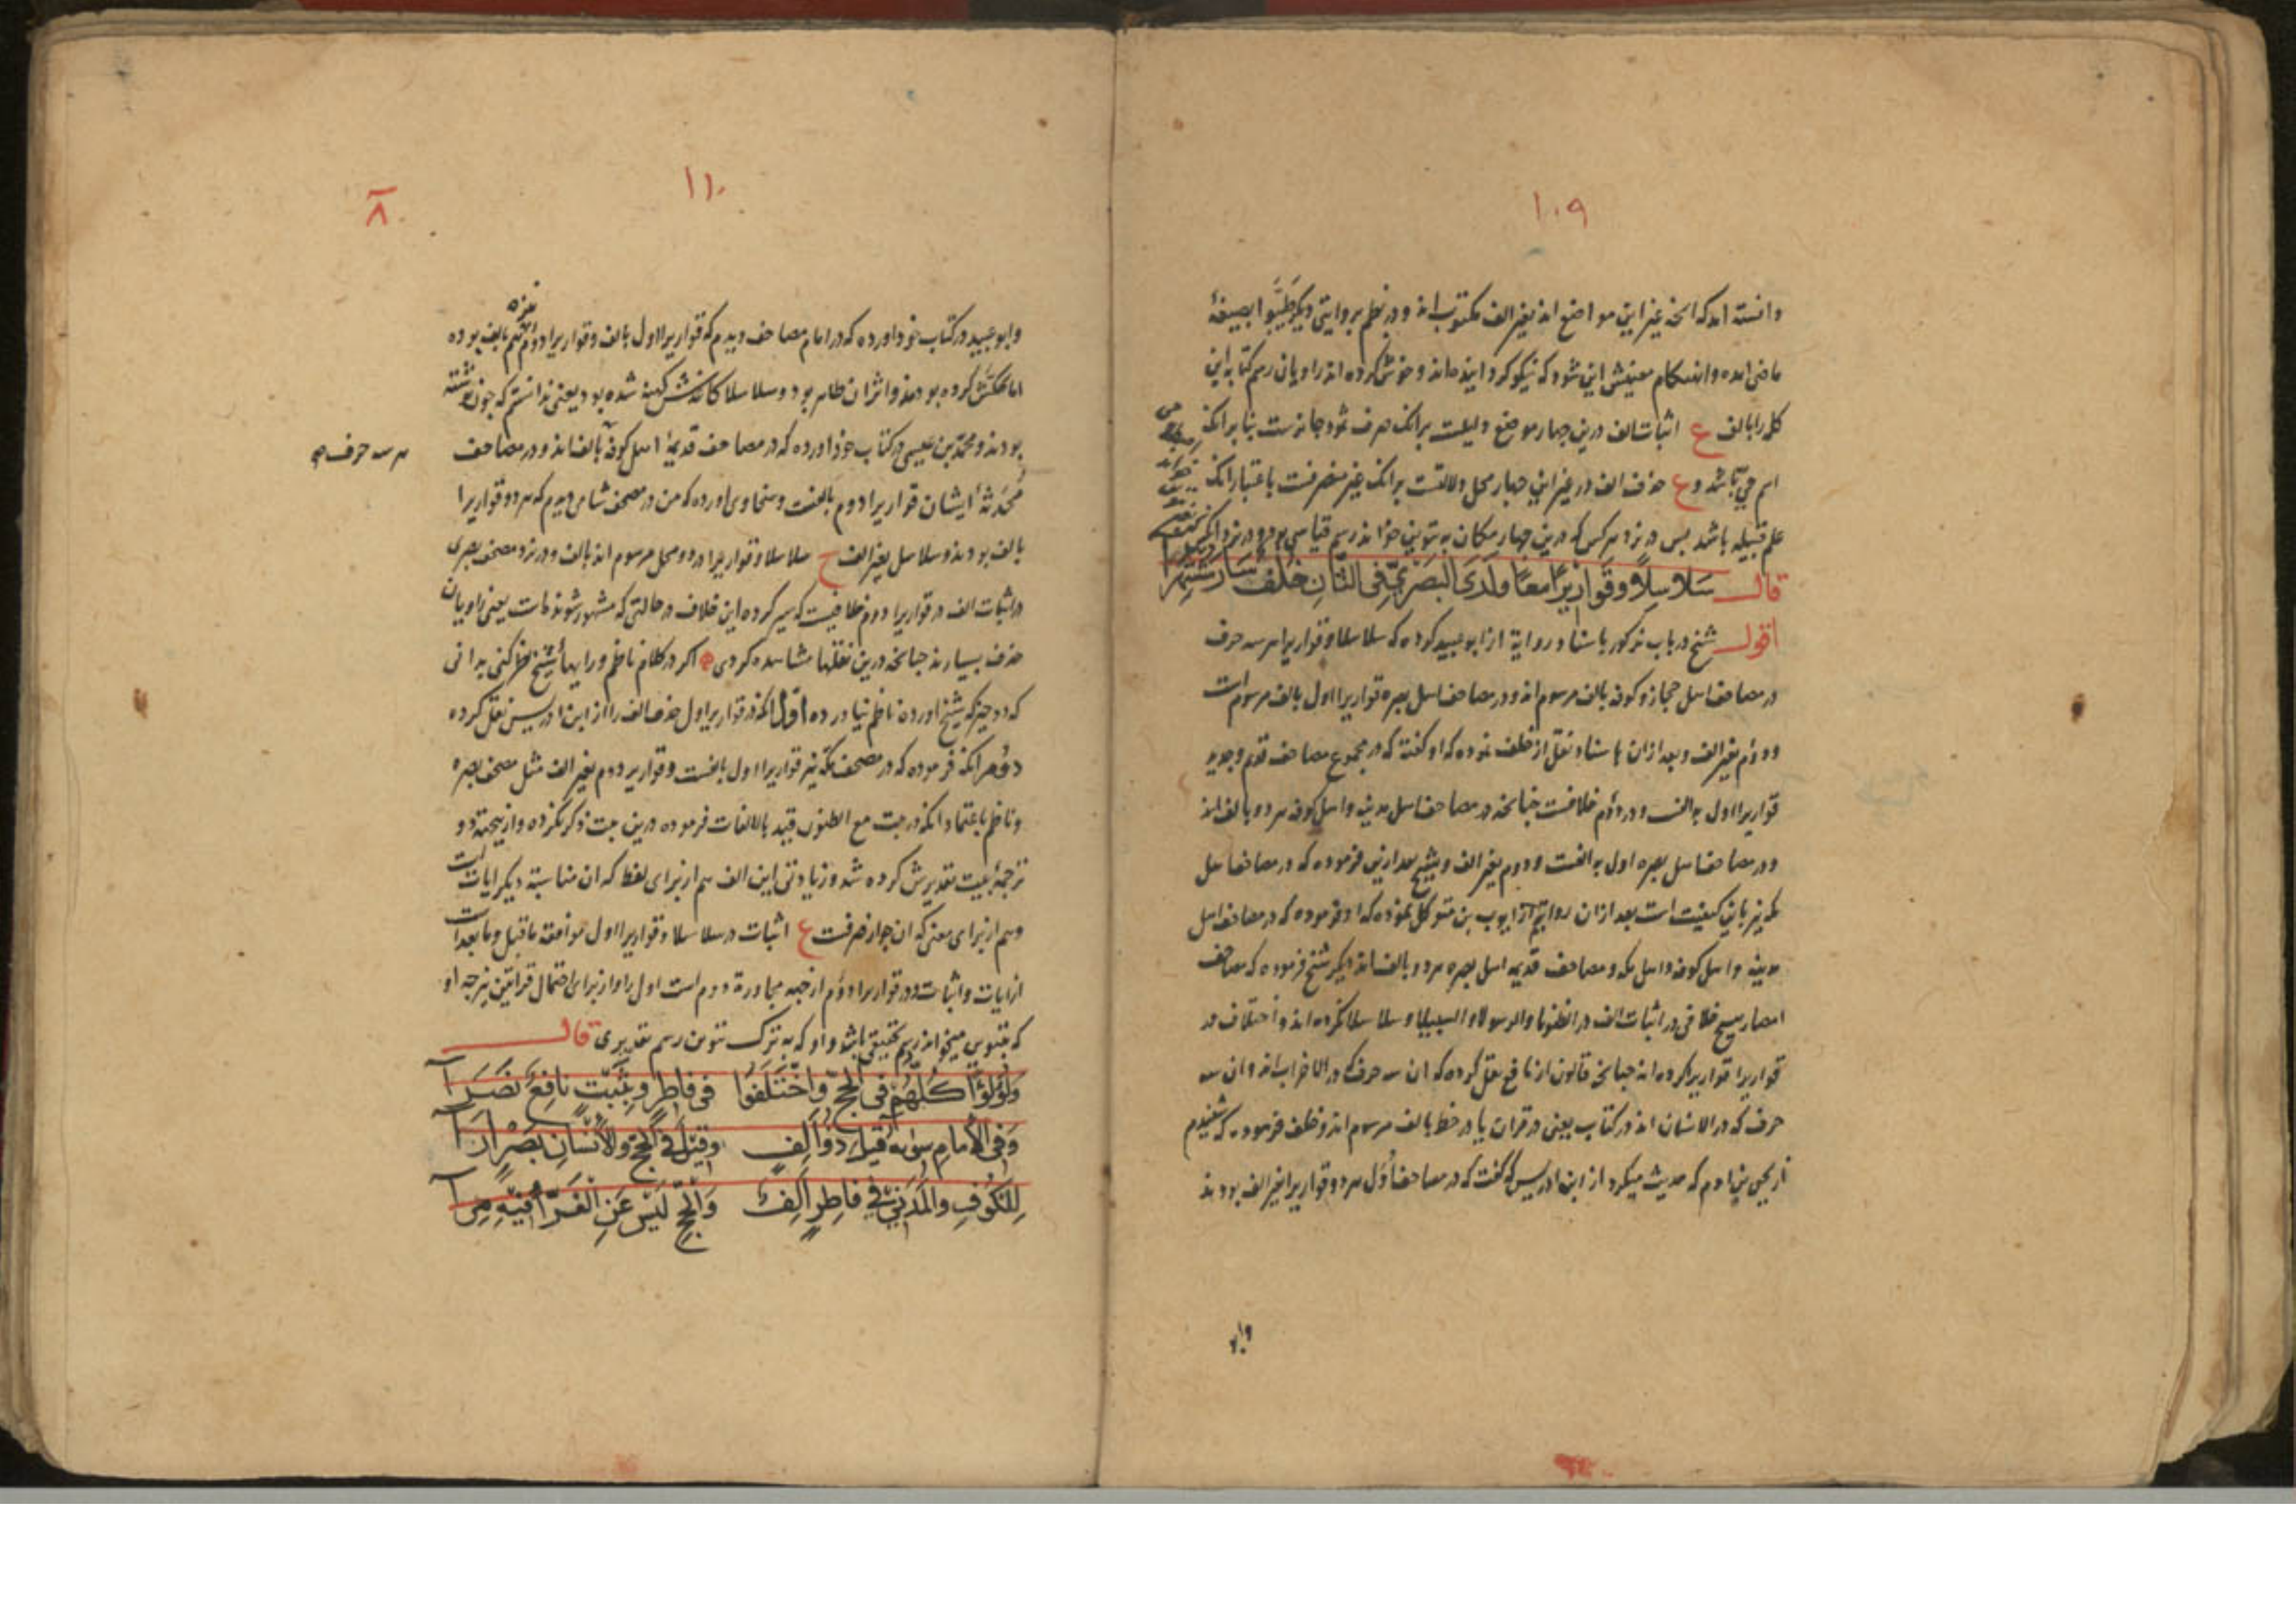 ۱۰۹
دانسته اند که آنچه غیر این مواضع اند بغیر الف مکتوب اند و در نظم بروایتی دیگر طَیِّبُوا بصیغهٔ
ماضی آمده و انهنگام معینش این شود که نیکو کرداینده اند و خوش کرده اند راویان رسم کتابه این
کلمه را بالف ع اثبات الف درین چهار موضع دلیلست برانکه صرف ثمود جائزست بنا برانکه
اسم حی باشد و ع حذف الف در غیر این چهار محل دلالتست برانکه غیر منصرفست باعتبار انکه
علم قبیله باشد پس در نزد هرکس که درین چهار مکان به تنوین خواند رسم قیاسی بود و در نزد
قال سَلاسِلًا وَقَوارِیرًا مَعًا وَلَدَی الْبَصْرِیِّ فِی الثَّانِ خُلْفٌ سَارَ مُشْتَهِرَا
اقول شیخ در باب مذکور باسناد روایة از ابو عبید کرده که سلاسلا و قواریرا هر سه حرف
در مصاحف اهل حجاز و کوفه بالف مرسوم اند و در مصاحف اهل بصره قواریرا اول بالف مرسوم است
و دوم بغیر الف و بعد ازان باسناد نقل از خلف نموده که او گفته که در مجموع مصاحف قدیم و جدید
قواریرا اول به الف و در دوم خلافست چنانچه در مصاحف اهل مدینه و اهل کوفه هر دو بالف اند
و در مصاحف اهل بصره اول به الفست و دوم بغیر الف و شیخ بعد ازین فرموده که در مصاحف اهل
مکه نیز باین کیفیت است بعد ازان روایتم از ایوب بن متوکل نموده که او فرموده که در مصاحف اهل
مدینه و اهل کوفه و اهل مکه و مصاحف قدیمه اهل بصره هر دو بالف اند دیگر شیخ فرموده که مصاحف
امصار هیچ خلافی در اثبات الف در الظنونا و الرسولا و السبیلا و سلاسلا نکرده اند و اختلاف در
قواریرا قواریرا کرده اند چنانچه قالون از نافع نقل کرده که ان سه حرف که در الاحزاب اند و ان سه
حرف که در الانسان اند در کتاب یعنی در قران یا در خط بالف مرسوم اند و خلف فرموده که شنیدم
از یحیی بن ادم که حدیث میکرد از ابن ادریس که گفت که در مصاحف اُوَل هر دو قواریرا بغیر الف بودند
وابو
۱۱۰
۸
وابو عبید در کتاب خود آورده که در امام مصاحف دیدم که قواریرا اول بالف و قواریرا دوم هم بالف بوده
اما حکش کرده بودند و اثر ان ظاهر بود و سلاسلا کانه کهنه شده بود یعنی ندانستم که چون نوشته
بودند و محمد بن عیسی در کتاب خود آورده که در مصاحف قدیمهٔ اهل کوفه بالف اند و در مصاحف
هر سه حرف
مُحْدَثهٔ ایشان قواریرا دوم بالفست و سخاوی اورده که من در مصحف شامی دیدم که هر دو قواریرا
بالف بودند و سلاسل بغیر الف ح سلاسلا و قواریرا در دو محل مرسوم اند بالف و در نزد مصحف بصری
در اثبات الف در قواریرا دوم خلافیست که سیر کرده این خلاف در حالتی که مشهور شونده است یعنی راویان
حذف بسیارند چنانچه درین نقلها مشاهده کردی اگر در کلام ناظم و در ایها شیخ نظر کنی بدانی
که دو چیز که شیخ اورده ناظم نیاورده اوّل انکه در قواریر اول حذف الف را از ابن ادریس نقل کرده
دوُم انکه فرموده که در مصحف مکه نیز قواریرا اول بالفست و قواریر دوم بغیر الف مثل مصحف بصره
و ناظم باعتماد انکه در بیت مع الظنون قید بالالفات فرموده درین بیت ذکر نکرده و ازینجهة در
ترجمهٔ بیت تقدیرش کرده شد و زیادتی این الف هم از برای لفظ که ان مناسبة دیگر ایات است
و هم از برای معنی که ان جواز صرفست ع اثبات در سلاسلا و قواریرا اول موافقة ماقبل و مابعد است
از ایات و اثبات در قواریرا دوم از جهة مجاورة دوم است اول را و از برای احتمال قراءتین نیز چه او
که بتنوین میخواند رسم تحقیقی باشد و او که به ترک تنوین رسم تقدیری قال
وَلُؤْلُؤًا کُلُّهُمْ فِی الْحَجِّ وَاخْتَلَفُوا فِی فَاطِرٍ وَبِثَبْتٍ نَافِعٌ نَصَرَا
وَفِی الْاِمَامِ سِوَاهُ قِیلَ ذُو اَلِفٍ وَقِیلَ فِی الْحَجِّ وَالْاِنْسَانِ بَصْرٍ اَرَا
لِلْکُوفِ وَالْمَدَنِیِّ فِی فَاطِرٍ اَلِفٌ وَالْحَجِّ لَیْسَ عَنِ الْفَرَّا فِیهِ مِرَا